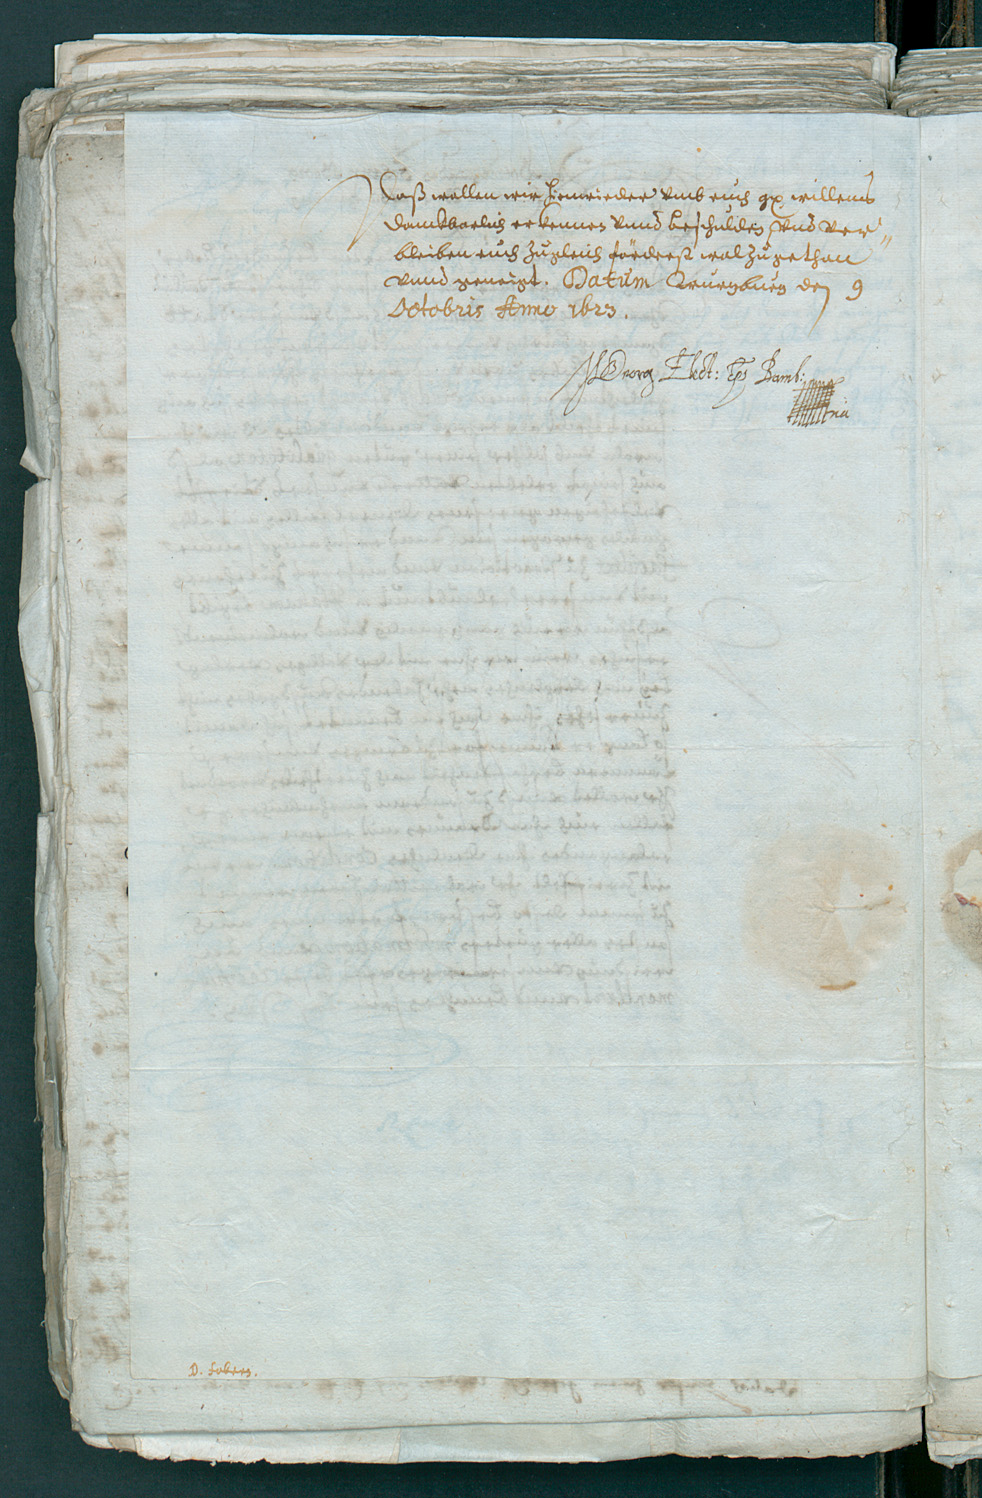 Daß wollen wir hinwieder vmb euch gn. willens
danckbarlich erkennen vnnd beschulden, vnd ver„
bleiben euch zugleich förderst wol zugethan
vnnd geneigt. Datum den 9
Octobris Anno 1623.
JGeorg Elect: Eps Bamb:
D. Fobers.